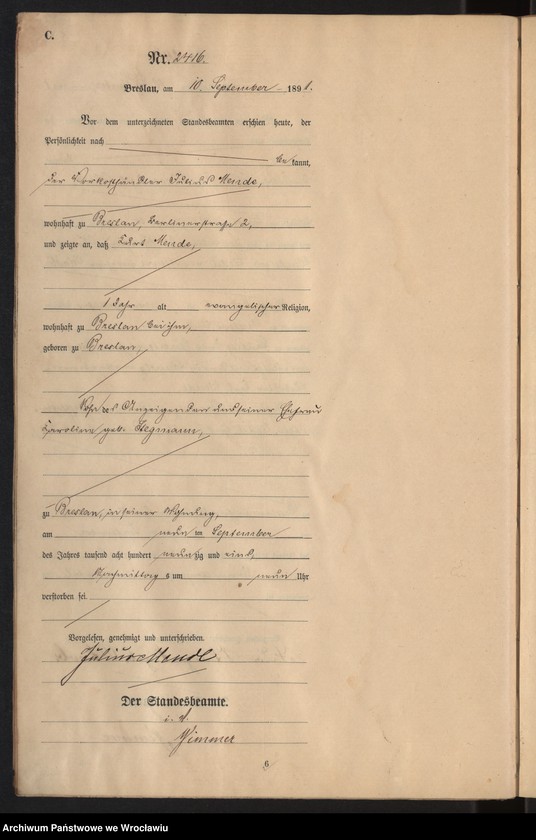 C.
Nr. 2416.
Breslau, am 10. September 1891.
Vor dem unterzeichneten Standesbeamten erschien heute, der
Persönlichkeit nach
bekannt,
der Vorkosthändler Julius Mende,
wohnhaft zu Breslau, Berlinerstraße 2,
und zeigte an, daß Kurt Mende,
1 Jahr alt evangelischer Religion,
wohnhaft zu Breslau bei ihm,
geboren zu Breslau,
Sohn des Anzeigenden und seiner Ehefrau
Karoline geb. Stegmann,
zu Breslau, in seiner Wohnung,
am neun ten September
des Jahres tausend acht hundert neunzig und eins,
Nachmittags um neun Uhr
verstorben sei.
Vorgelesen, genehmigt und unterschrieben.
Julius Mende
Der Standesbeamte.
i. V.
6
Archiwum Państwowe we Wrocławiu